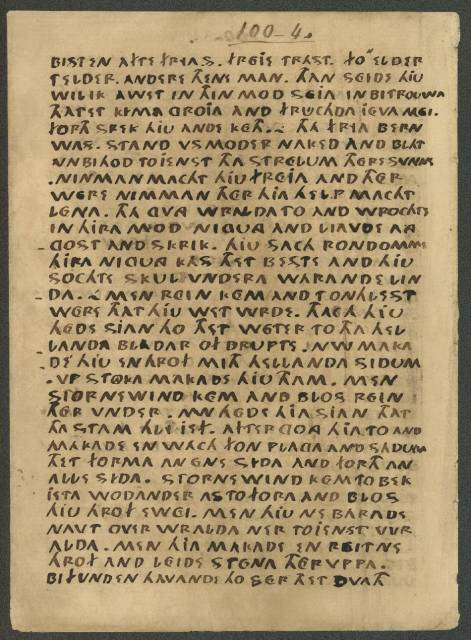 BISTEN AFTE FRYAS. FO FELDER
T ELDER. ANDERE THENE MAN. THAN SEIDE HIU
WILIK AWET IN THIN MOD SEJA IN BITROUWA
THATET KYMA GROJA AND FRUCHDA JEVA MEI.
FORTH SPREK HIU ANDE KETH. THA FRYA BERN
WAS. STAND VS MODER NAKED AND BLAT
VNBIHOD TO JENST THA STRELUM THERE SUNNE
. NINMAN MACHT HIU FREJA AND THER
WERE NIMMAN THER HIA HELP MACHT
LENA. THA GVNG WRALDA TO AND WROCHTE
IN HIRA MOD NIGUNG AND LIAVDE ANG
GOST AND SKRIK. HIU SACH RONDOMME
HIRA NIGUNG KAS THET BESTE AND HIU
SOCHTE SKUL VNDERA WARANDE LIN
DA. MEN REIN KEM AND T ONHLEST
WERE THAT HIU WET WRDE. THACH HIU
HEDE SIAN HO THET WETER TO THA HEL
LANDA BLADAR OF DRUPTE. NW MAKA
DE HIU EN HROF MITH HELLANDA SIDUM
. VP STOKA MAKADE HIU THAM. MEN
STORNEWIND KEM AND BLOS REIN
THER VNDER. NW HEDE HIA SIAN THAT
THA STAM HLI JEF. AFTER GONG HIA TO AND
MAKADE EN WACH FON PLAGA AND SADUM
THET FORMA AN ENE SIDA AND FORTH AN
ALLE SIDA. STORNEWIND KEM TO BEK
JETA WODANDER AS TO FORA AND BLOS
HIU HROF EWEI. MEN HIU NE BARADE
NAVT OVER WRALDA NER TO JENST WR
ALDA. MEN HIA MAKADE EN REITNE
HROF AND LEIDE STENA THERVPPA.
BIFUNDEN HAVANDE HO SER THET DVATH